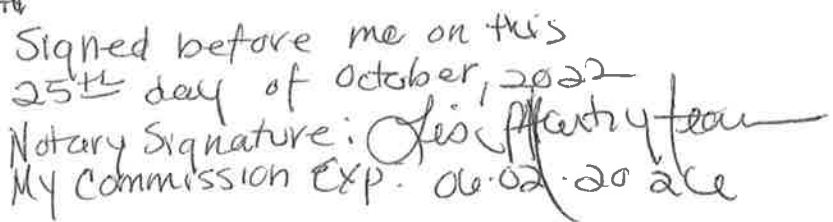 Signed before me on this
25th day of October, 2022
Notary Signature:
My Commission Exp. 06.02.2026